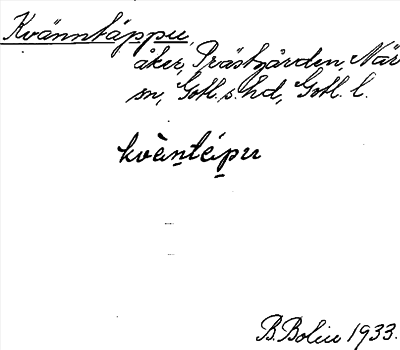 Kvänntáppu,
åker, Prästgården, När
sn, Gotl. s. hd, Gotl. l.
kvȁntápu
B. Bolin 1933.